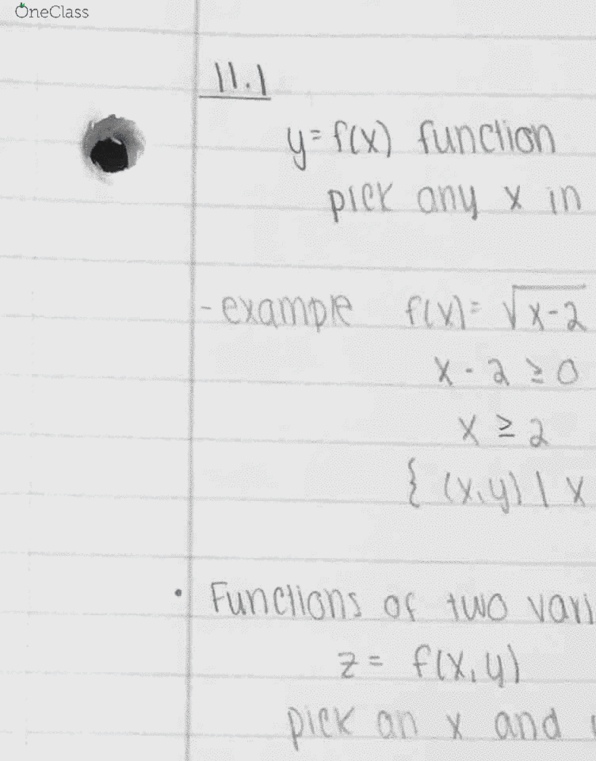 OneClass
11.1
y = f(x) function
pick any x in
- example f(x) = √x-2
x - 2 ≥ 0
x ≥ 2
{ (x,y) | x
• Functions of two vari
z = f(x,y)
pick an x and